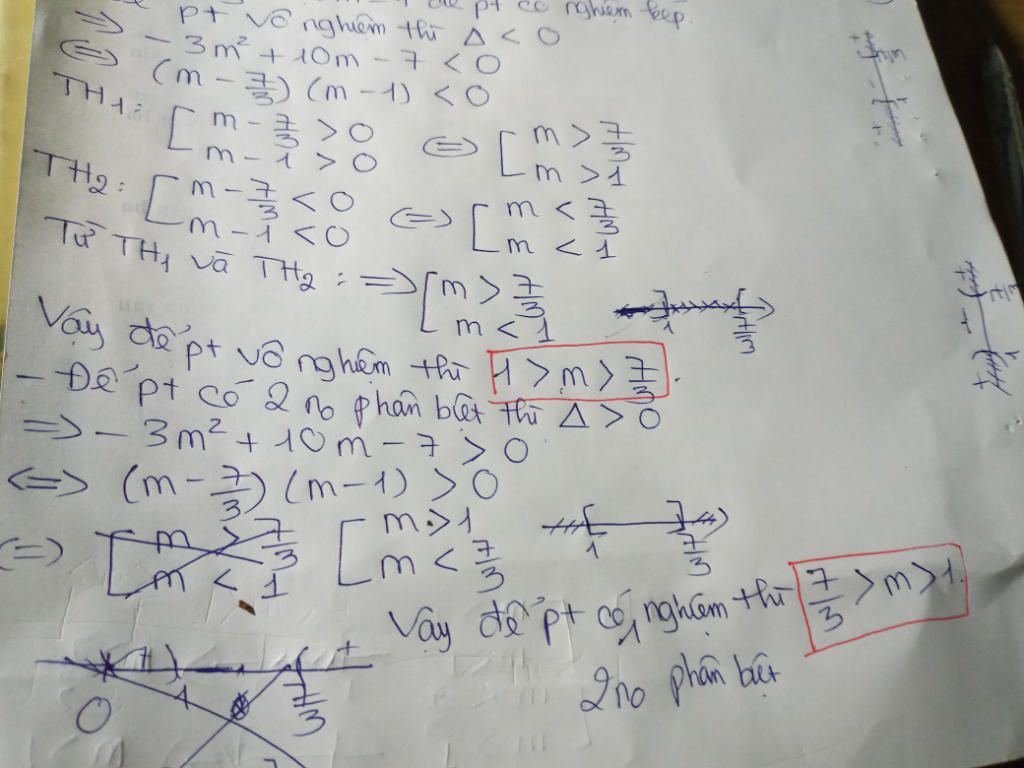 để pt có nghiệm kép.
=> pt vô nghiệm thì Δ < 0
<=> - 3m² + 10m - 7 < 0
(m - 7/3) (m - 1) < 0
TH1: [ m - 7/3 > 0 <=> [ m > 7/3
m - 1 > 0 m > 1
TH2: [ m - 7/3 < 0 <=> [ m < 7/3
m - 1 < 0 m < 1
Từ TH1 và TH2 : => [ m > 7/3
m < 1
1 7/3
Vậy để pt vô nghiệm thì 1 > m > 7/3.
- Để pt có 2 no phân biệt thì Δ > 0
=> - 3m² + 10m - 7 > 0
<=> (m - 7/3) (m - 1) > 0
(=) [ m > 7/3 [ m > 1
m < 1 m < 7/3
1 7/3
Vậy để pt có 1 nghiệm thì 7/3 > m > 1.
2 no phân biệt
+ +
0 1 7/3